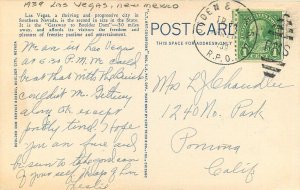 1939 LAS VEGAS, NEW MEXICO
Las Vegas, a thriving and progressive city in
Southern Nevada, is the second in size in the State.
It is the "Gateway to Boulder Dam"—30 miles
away, and affords its visitors the freedom and
pleasure of frontier pastime and amusement.
POST CARD
THIS SPACE FOR ADDRESS ONLY
R.P.O.
Man in Las Vegas
at 6:30 P.M. We could
beat that with the Buick
couldn't we. Getting
along OK except
pretty tired. Hope
you are fine and
be sure to take good care
of yourself
Leslie
Mrs D J Chandler
1240 No. Park
Pomona
Calif